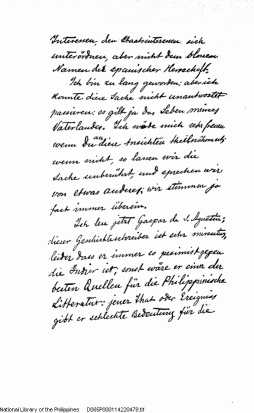 Interessen den Staatsinteressen sich
unterordnen, aber nicht dem blossen
Namen der spanischer Herrschaft.
Ich bin zu lang geworden; aber ich
konnte diese Sache nicht unantwortet
passieren; es gilt ja das Leben meines
Vaterlandes. Ich würde mich sehr freuen
wenn du an diese Ansichten
wenn nicht, so lassen wir die
Sache unberührt, und sprechen wir
von etwas anderes; wir stimmen ja
fast immer überein.
Ich les jetzt Gaspar de S. Agustin;
dieser Geschichtschreiber ist sehr minutiös,
leider dass er immer so pessimist gegen
die Indier ist, sonst wäre er einer der
besten Quellen für die Philippinische
Litteratur: jener That oder Ereigniss
gibt er schlechte Bedeutung für die
National Library of the Philippines